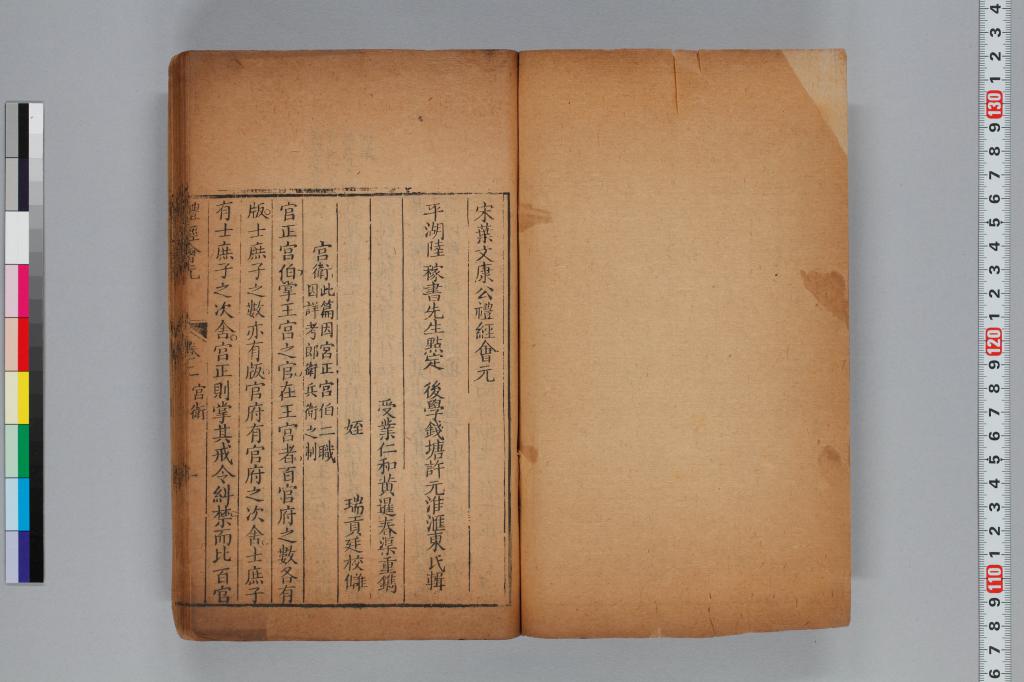 宋葉文康公禮經會元
平湖陸稼書先生點定 後學錢塘許元淮滙東氏輯
受業仁和黃暹春渠重鐫
姪 瑞貢廷校讎
宮衛此篇因宮正宮伯二職
因詳考郎衛兵衛之制
宮正宮伯掌王宮之官在王宮者百官府之數各有
版士庶子之數亦有版官府有官府之次舍士庶子
有士庶子之次舍宮正則掌其戒令糾禁而比百官
禮經會元 卷二 宮衛 一
4 3 2 1 130 9 8 7 6 5 4 3 2 1 120 9 8 7 6 5 4 3 2 1 110 9 8 7 6